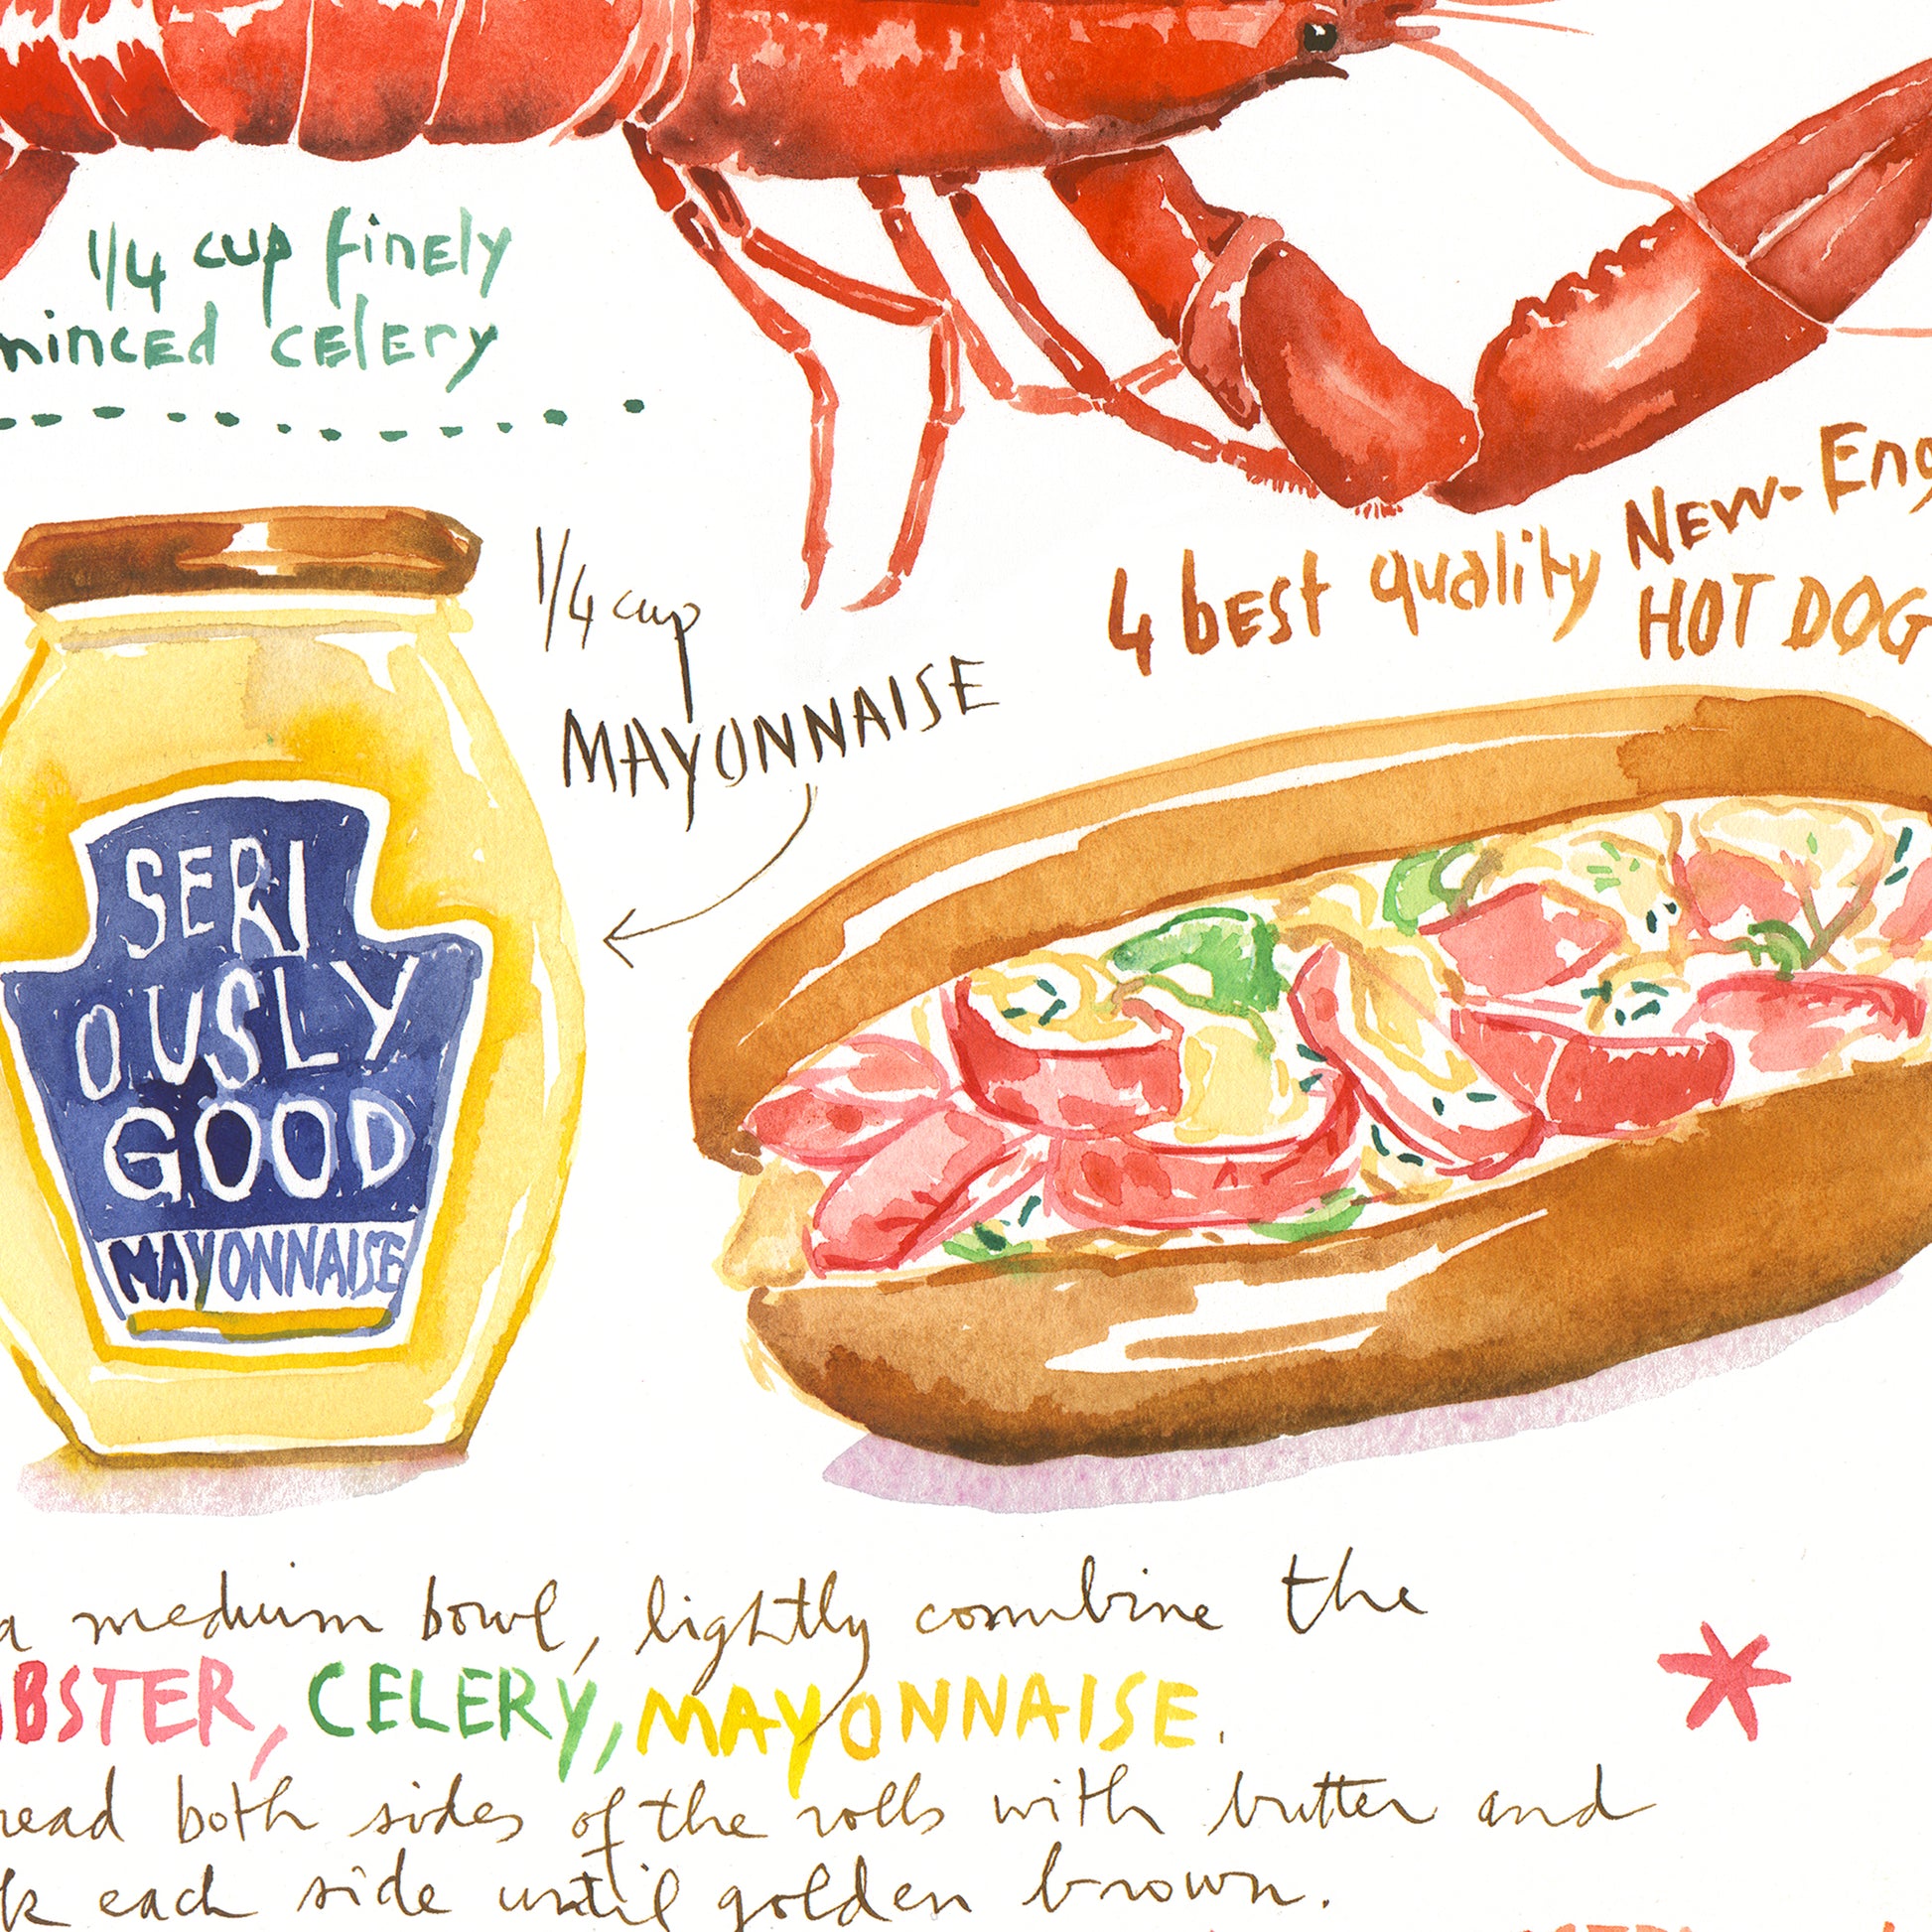 1/4 cup finely
minced celery
1/4 cup
MAYONNAISE
4 best quality New-Eng
HOT DOG
SERI
OUSLY
GOOD
MAYONNAISE
a medium bowl, lightly combine the
OBSTER, CELERY, MAYONNAISE.
read both sides of the rolls with butter and
k each side until golden brown.